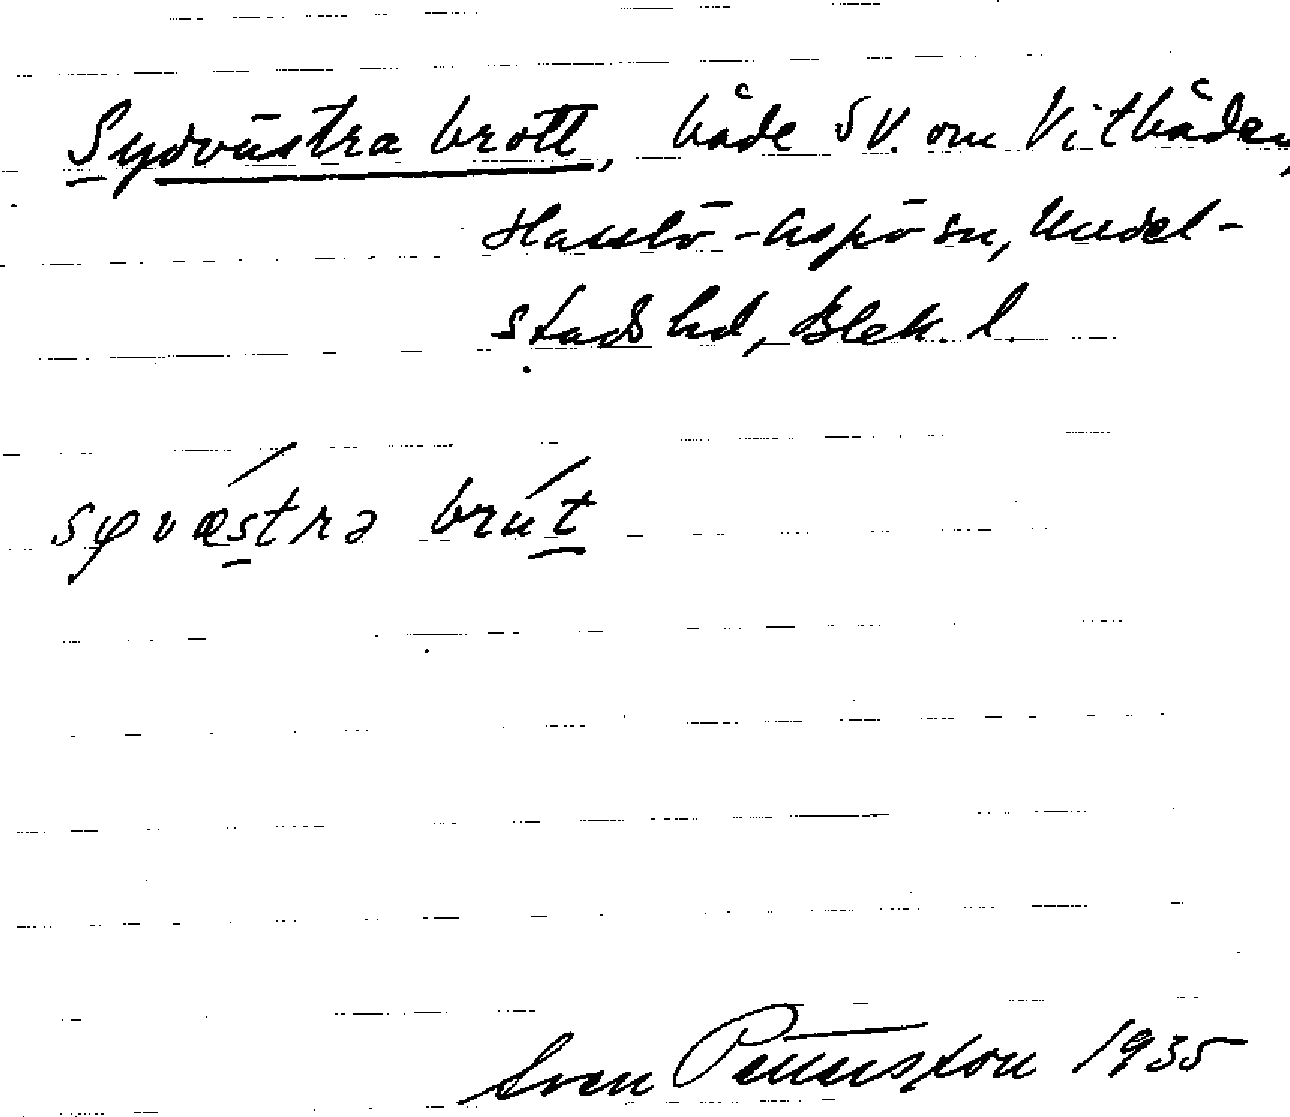 Sydvästra brott, både SV. om Vitbåden,
Hasslö-Aspö sn, Medel-
stads hd, Blek. l.
syvæstrə brút
Sven Pettersson 1935